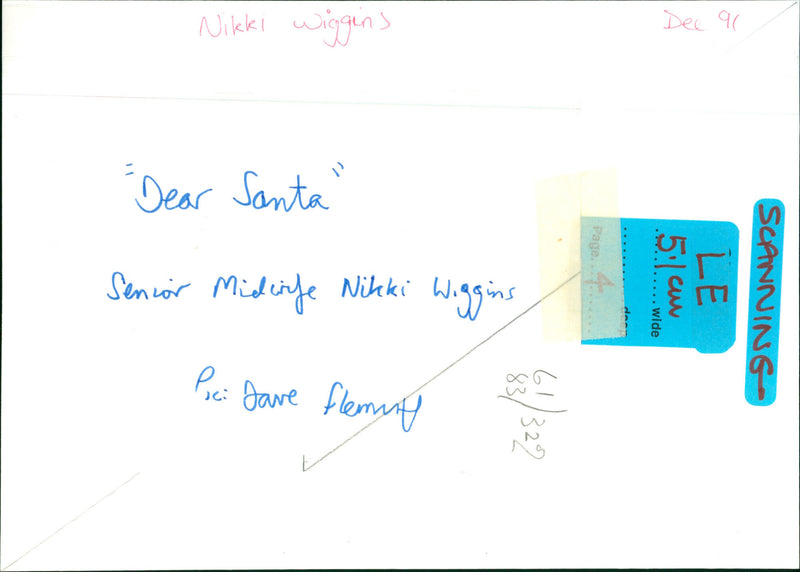 Nikki Wiggins
Dec 91
"Dear Santa"
Senior Midwife Nikki Wiggins
Pic: Dave Fleming
LE
5.1 cm
wide
deep
Page 4
SCANNING
61/329
83